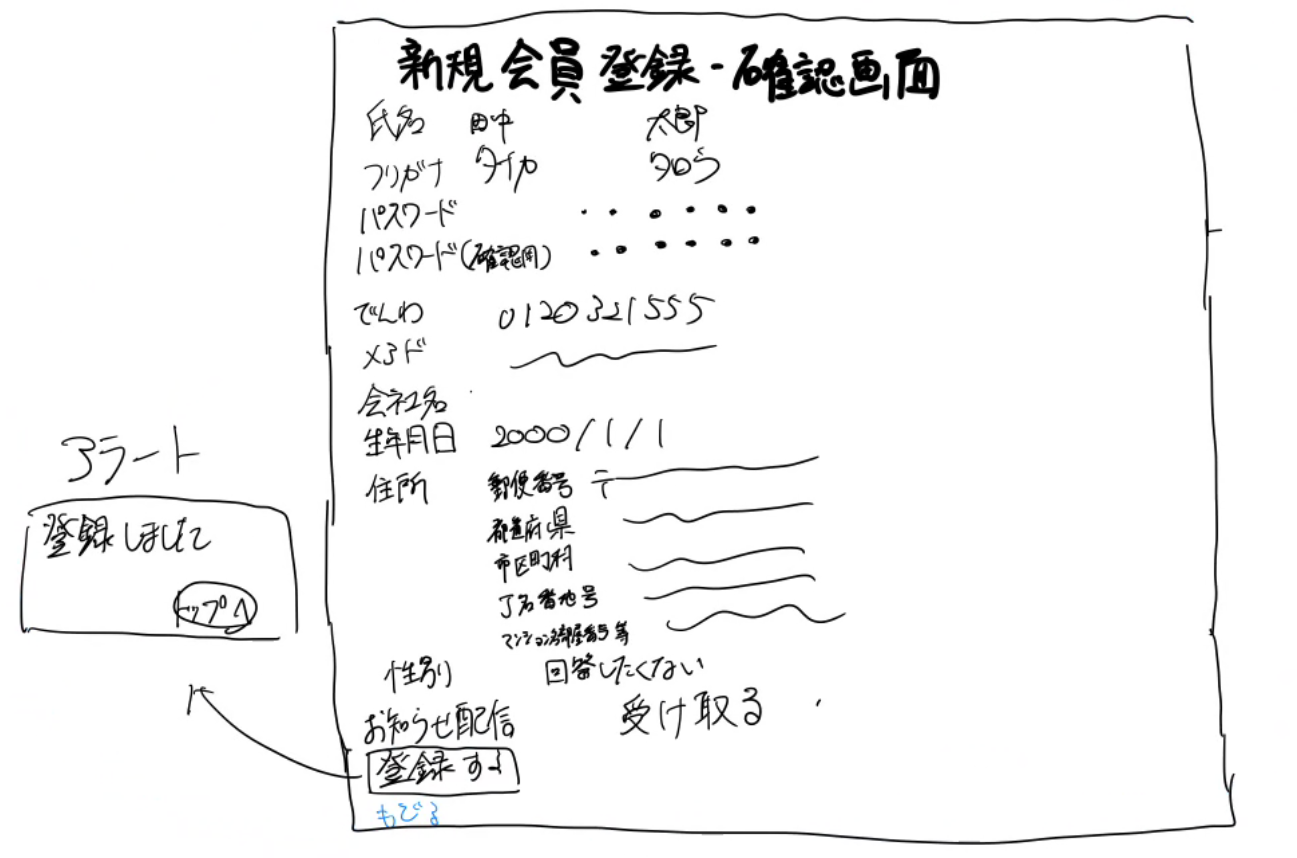 新規会員登録-確認画面
氏名 田中 太郎
フリガナ タナカ タロウ
パスワード ・・・・・・
パスワード(確認用) ・・・・・・
でんわ 0120321555
メアド
会社名
生年月日 2000/1/1
住所 郵便番号 〒
都道府県
市区町村
丁名番地号
マンション名部屋番号等
性別 回答したくない
お知らせ配信 受け取る
登録する
もどる
アラート
登録しました
トップへ